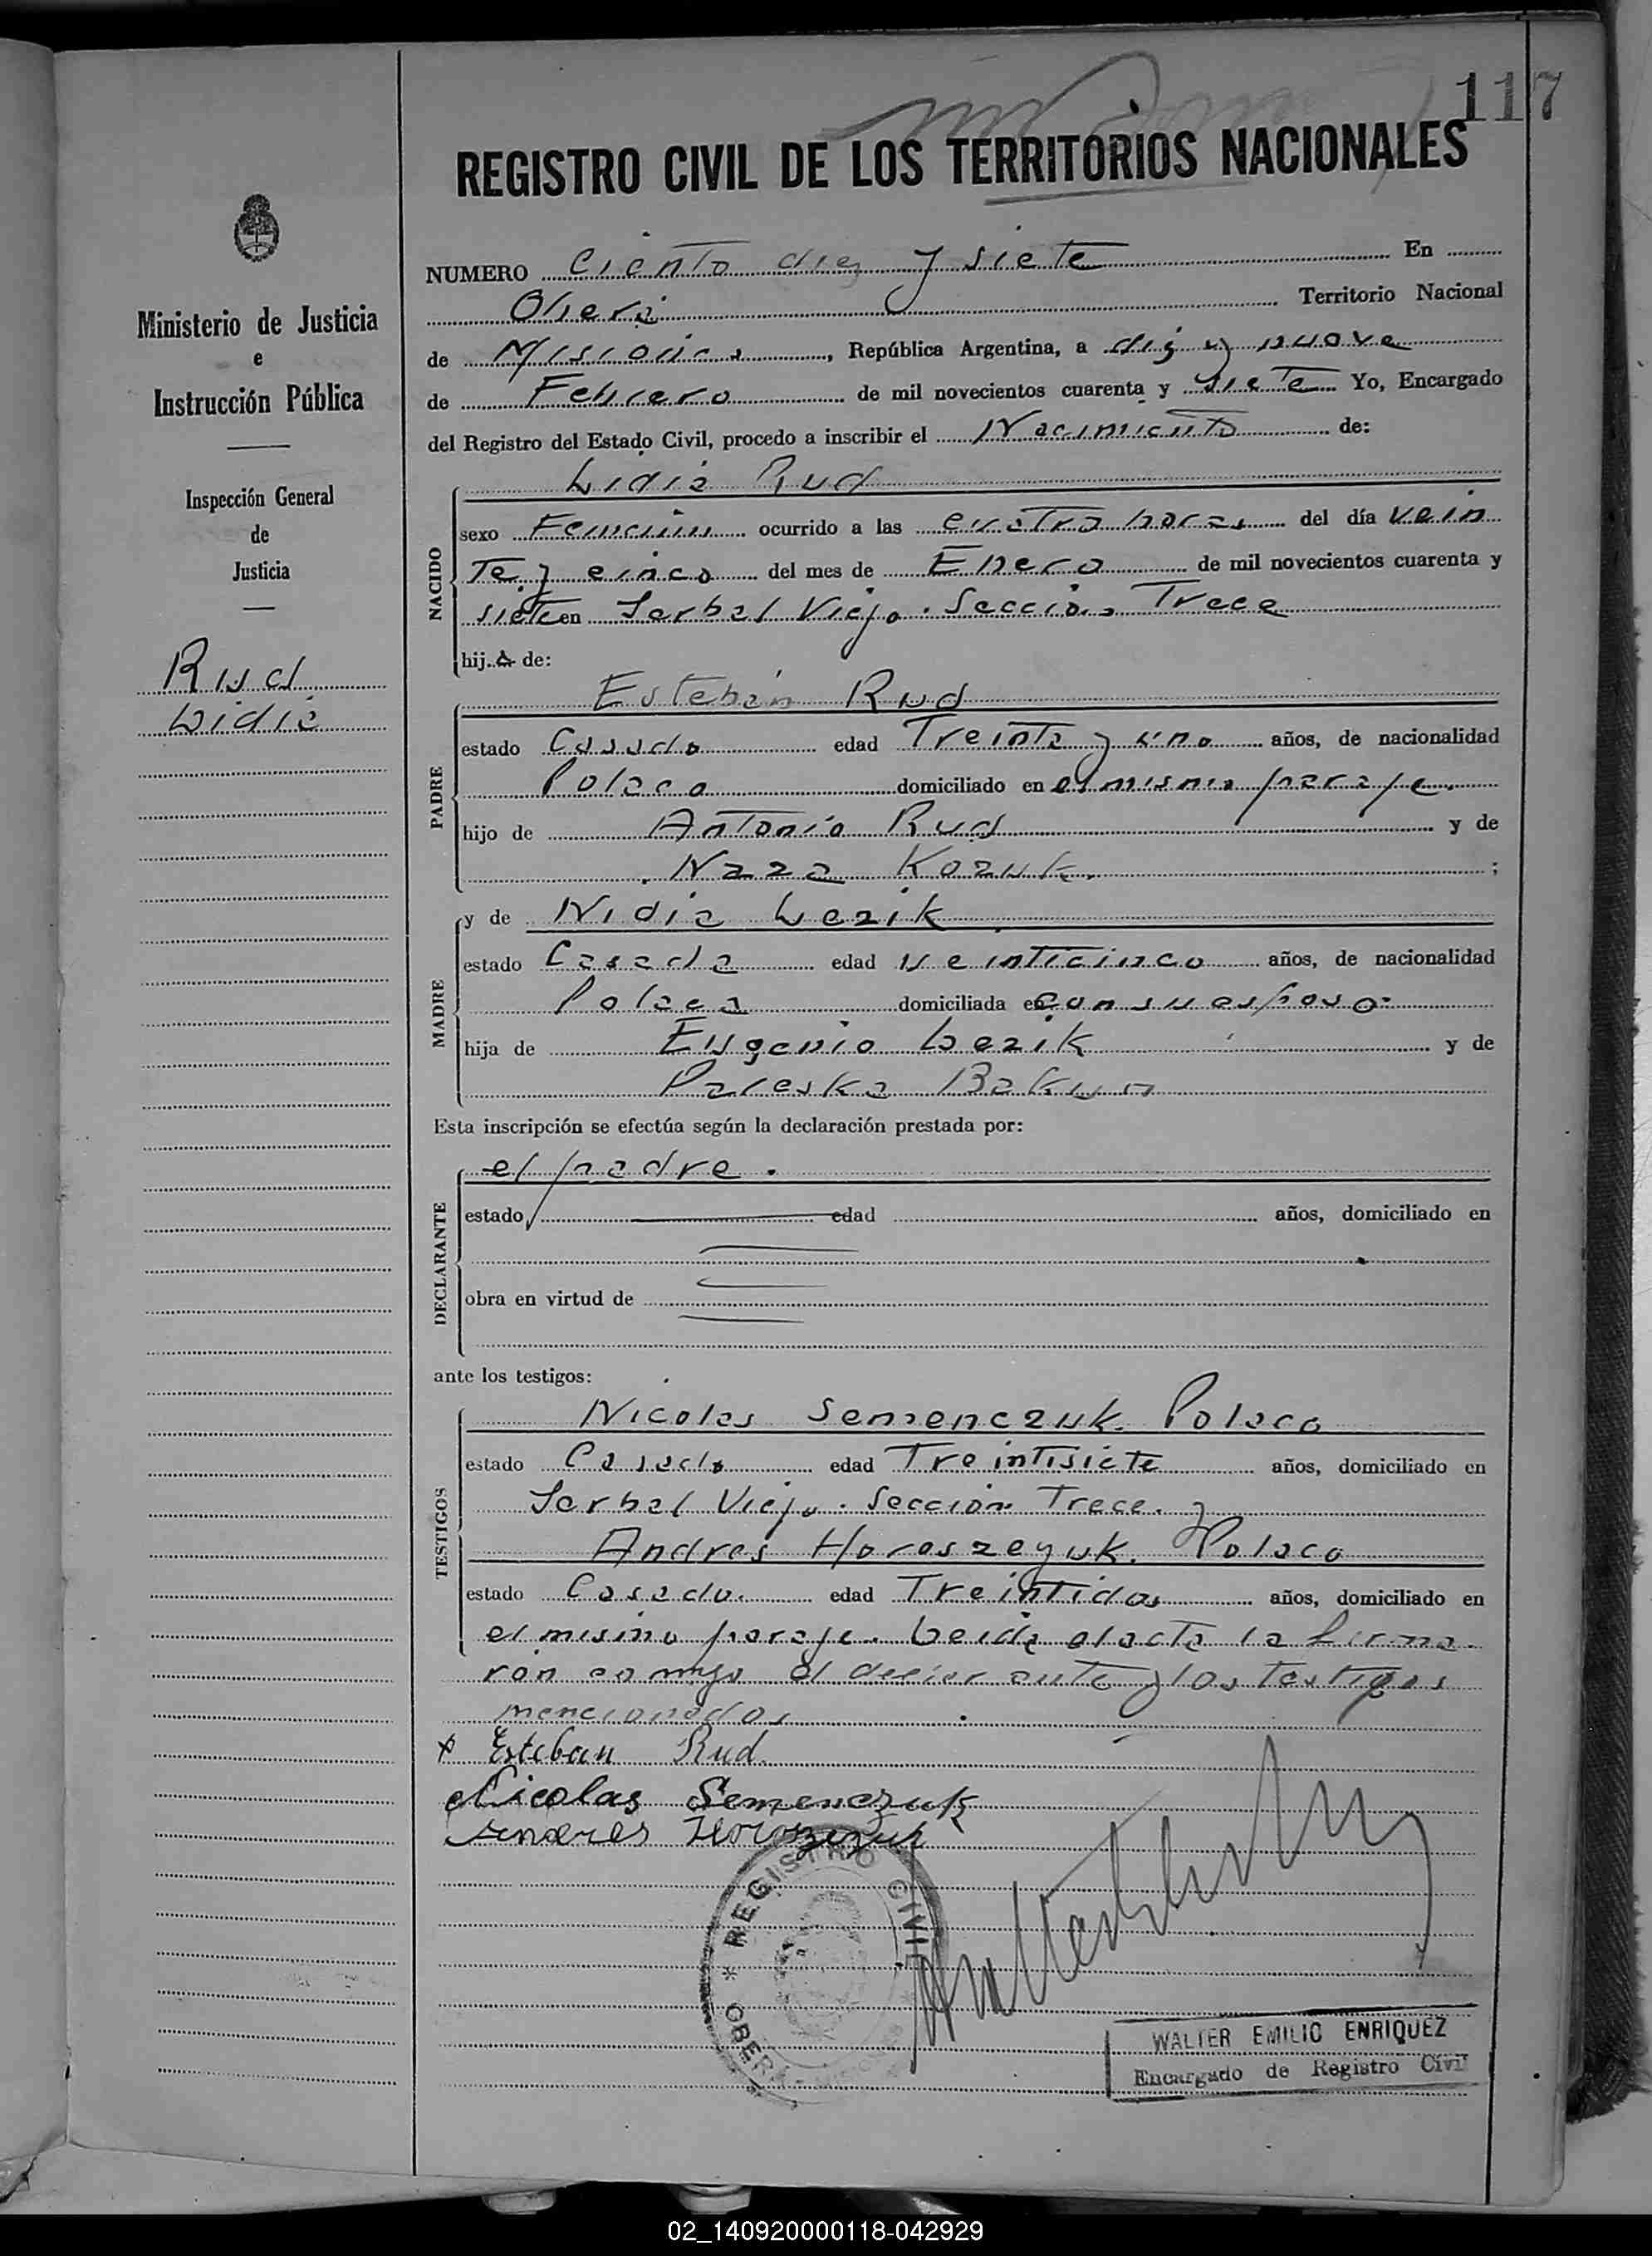 117
REGISTRO CIVIL DE LOS TERRITORIOS NACIONALES
Ministerio de Justicia
e
Instrucción Pública
Inspección General
de
Justicia
Rud
Lidia
NUMERO Ciento diez y siete En
Oberá Territorio Nacional
de Misiones, República Argentina, a diez y nueve
de Febrero de mil novecientos cuarenta y siete Yo, Encargado
del Registro del Estado Civil, procedo a inscribir el Nacimiento de:
NACIDO
Lidia Rud
sexo Femenino ocurrido a las cuatro horas del día vein
te y cinco del mes de Enero de mil novecientos cuarenta y
siete en Yerbal Viejo. Sección Trece
hija de:
PADRE
Esteban Rud
estado Casado edad Treinta y uno años, de nacionalidad
Polaca domiciliado en el mismo paraje.
hijo de Antonio Rud y de
Naza Kozuk. ;
MADRE
y de Nidia Lezik
estado Casada edad veinticinco años, de nacionalidad
Polaca domiciliada en con su esposo
hija de Eugenio Lezik y de
Paleska Bakun
Esta inscripción se efectúa según la declaración prestada por:
DECLARANTE
el padre.
estado edad años, domiciliado en
obra en virtud de
ante los testigos:
TESTIGOS
Nicolas Semenczuk. Polaco
estado Casado edad Treintisiete años, domiciliado en
Yerbal Viejo. Sección Trece. y
Andres Horoszeyuk. Polaco
estado Casado. edad Treintidos años, domiciliado en
el mismo paraje. Leida el acta la firma
ron conmigo el declarante y los testigos
mencionados
x Esteban Rud.
Nicolas Semenczuk
Andres
REGISTRO CIVIL
OBERA
WALTER EMILIO ENRIQUEZ
Encargado de Registro Civil
02_140920000118-042929